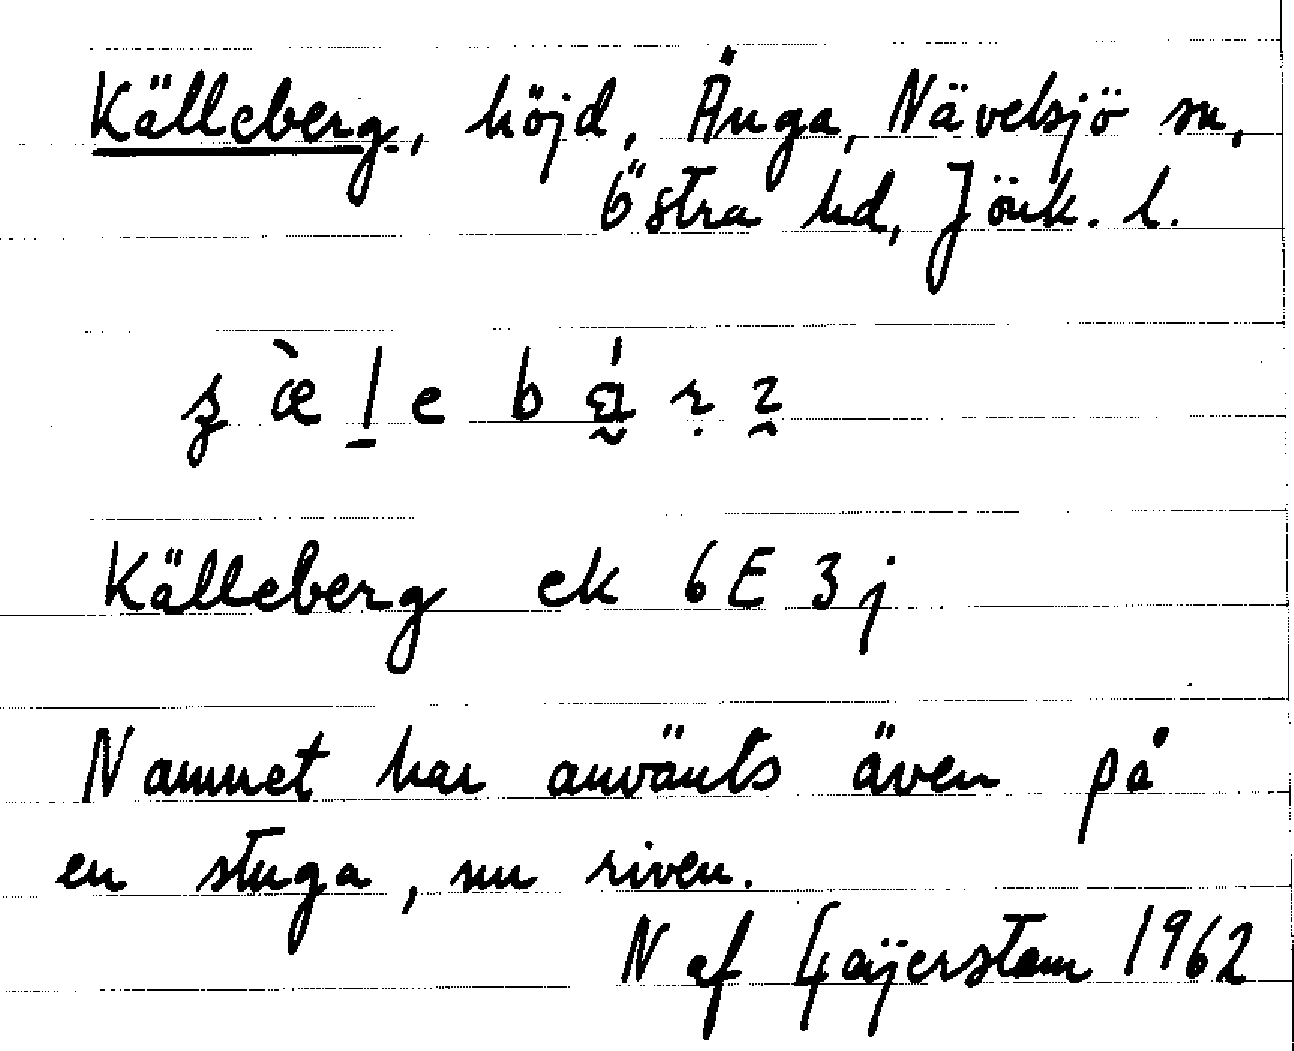 Källeberg, höjd, Ånga, Nävelsjö sn,
Östra hd, Jönk. l.
Källeberg ek 6E 3j
Namnet har använts även på
en stuga, nu riven.
N af Geijerstam 1962